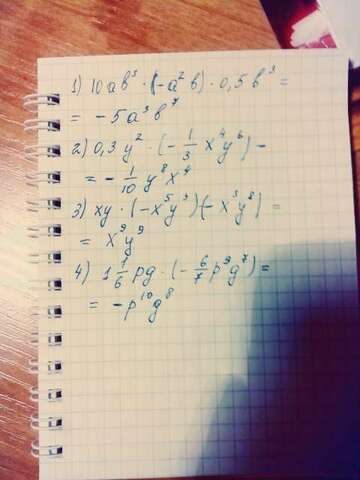 1) 10ab³ · (-a²b) · 0,5b³ =
= -5a³b⁷
2) 0,3y² · (-1/3 x⁴y⁶) =
= -1/10 y⁸x⁴
3) xy · (-x⁵y³)(-x³y⁸) =
= x⁹y⁹
4) 1 1/6 pg · (-6/7 p⁹g⁷) =
= -p¹⁰g⁸